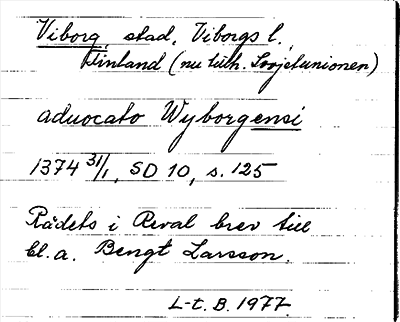 Viborg, stad, Viborgs l.,
Finland (nu tillh. Sovjetunionen)
aduocato Wyborgensi
1374 31/1, SD 10, s. 125
Rådets i Reval brev till
bl.a. Bengt Larsson.
L-t. B. 1977.